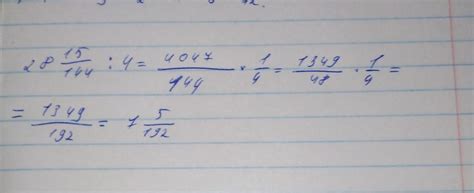 28 15/144 : 4 = 4047/144 · 1/4 = 1349/48 · 1/4 =
= 1349/192 = 7 5/192